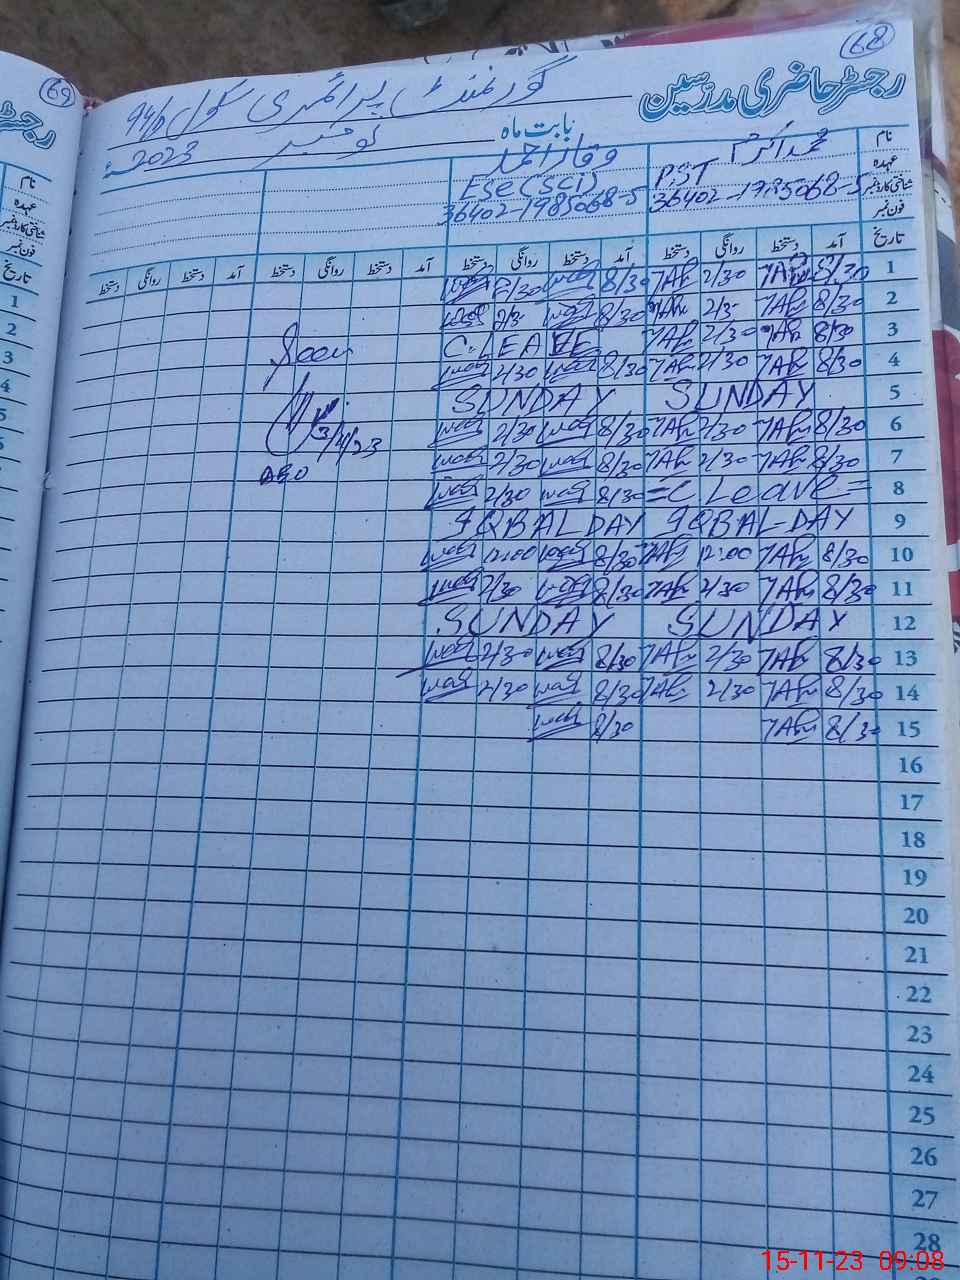 68
رجسٹر حاضری مدرسین
گورنمنٹ پرائمری سکول 94/D
بابت ماہ نومبر 2023ء
نام محمد اکرم وقار احمد
عہدہ PST Ese (Sci)
شناختی کارڈ نمبر 36402-1985068-5
فون نمبر
تاریخ آمد دستخط روانگی دستخط آمد دستخط روانگی دستخط آمد دستخط روانگی دستخط آمد دستخط روانگی دستخط
1 8/30 2/30 8/30 2/30
2 8/30 2/3 8/30 2/3
3 8/30 2/30 C.LEAVE
4 8/30 2/30 8/30 2/30
5 SUNDAY SUNDAY
6 8/30 2/30 8/30 2/30
7 8/30 2/30 8/30 2/30
8 =C Leave= 8/30 2/30
9 IQBAL-DAY IQBAL DAY
10 8/30 12:00 8/30 12:00
11 8/30 2/30 8/30 2/30
12 SUNDAY SUNDAY
13 8/30 2/30 8/30 2/30
14 8/30 2/30 8/30 2/30
15 8/30 8/30
16
17
18
19
20
21
22
23
24
25
26
27
28
69
نام
عہدہ
شناختی کارڈ نمبر
فون نمبر
تاریخ
1
2
3
4
15-11-23 09:08